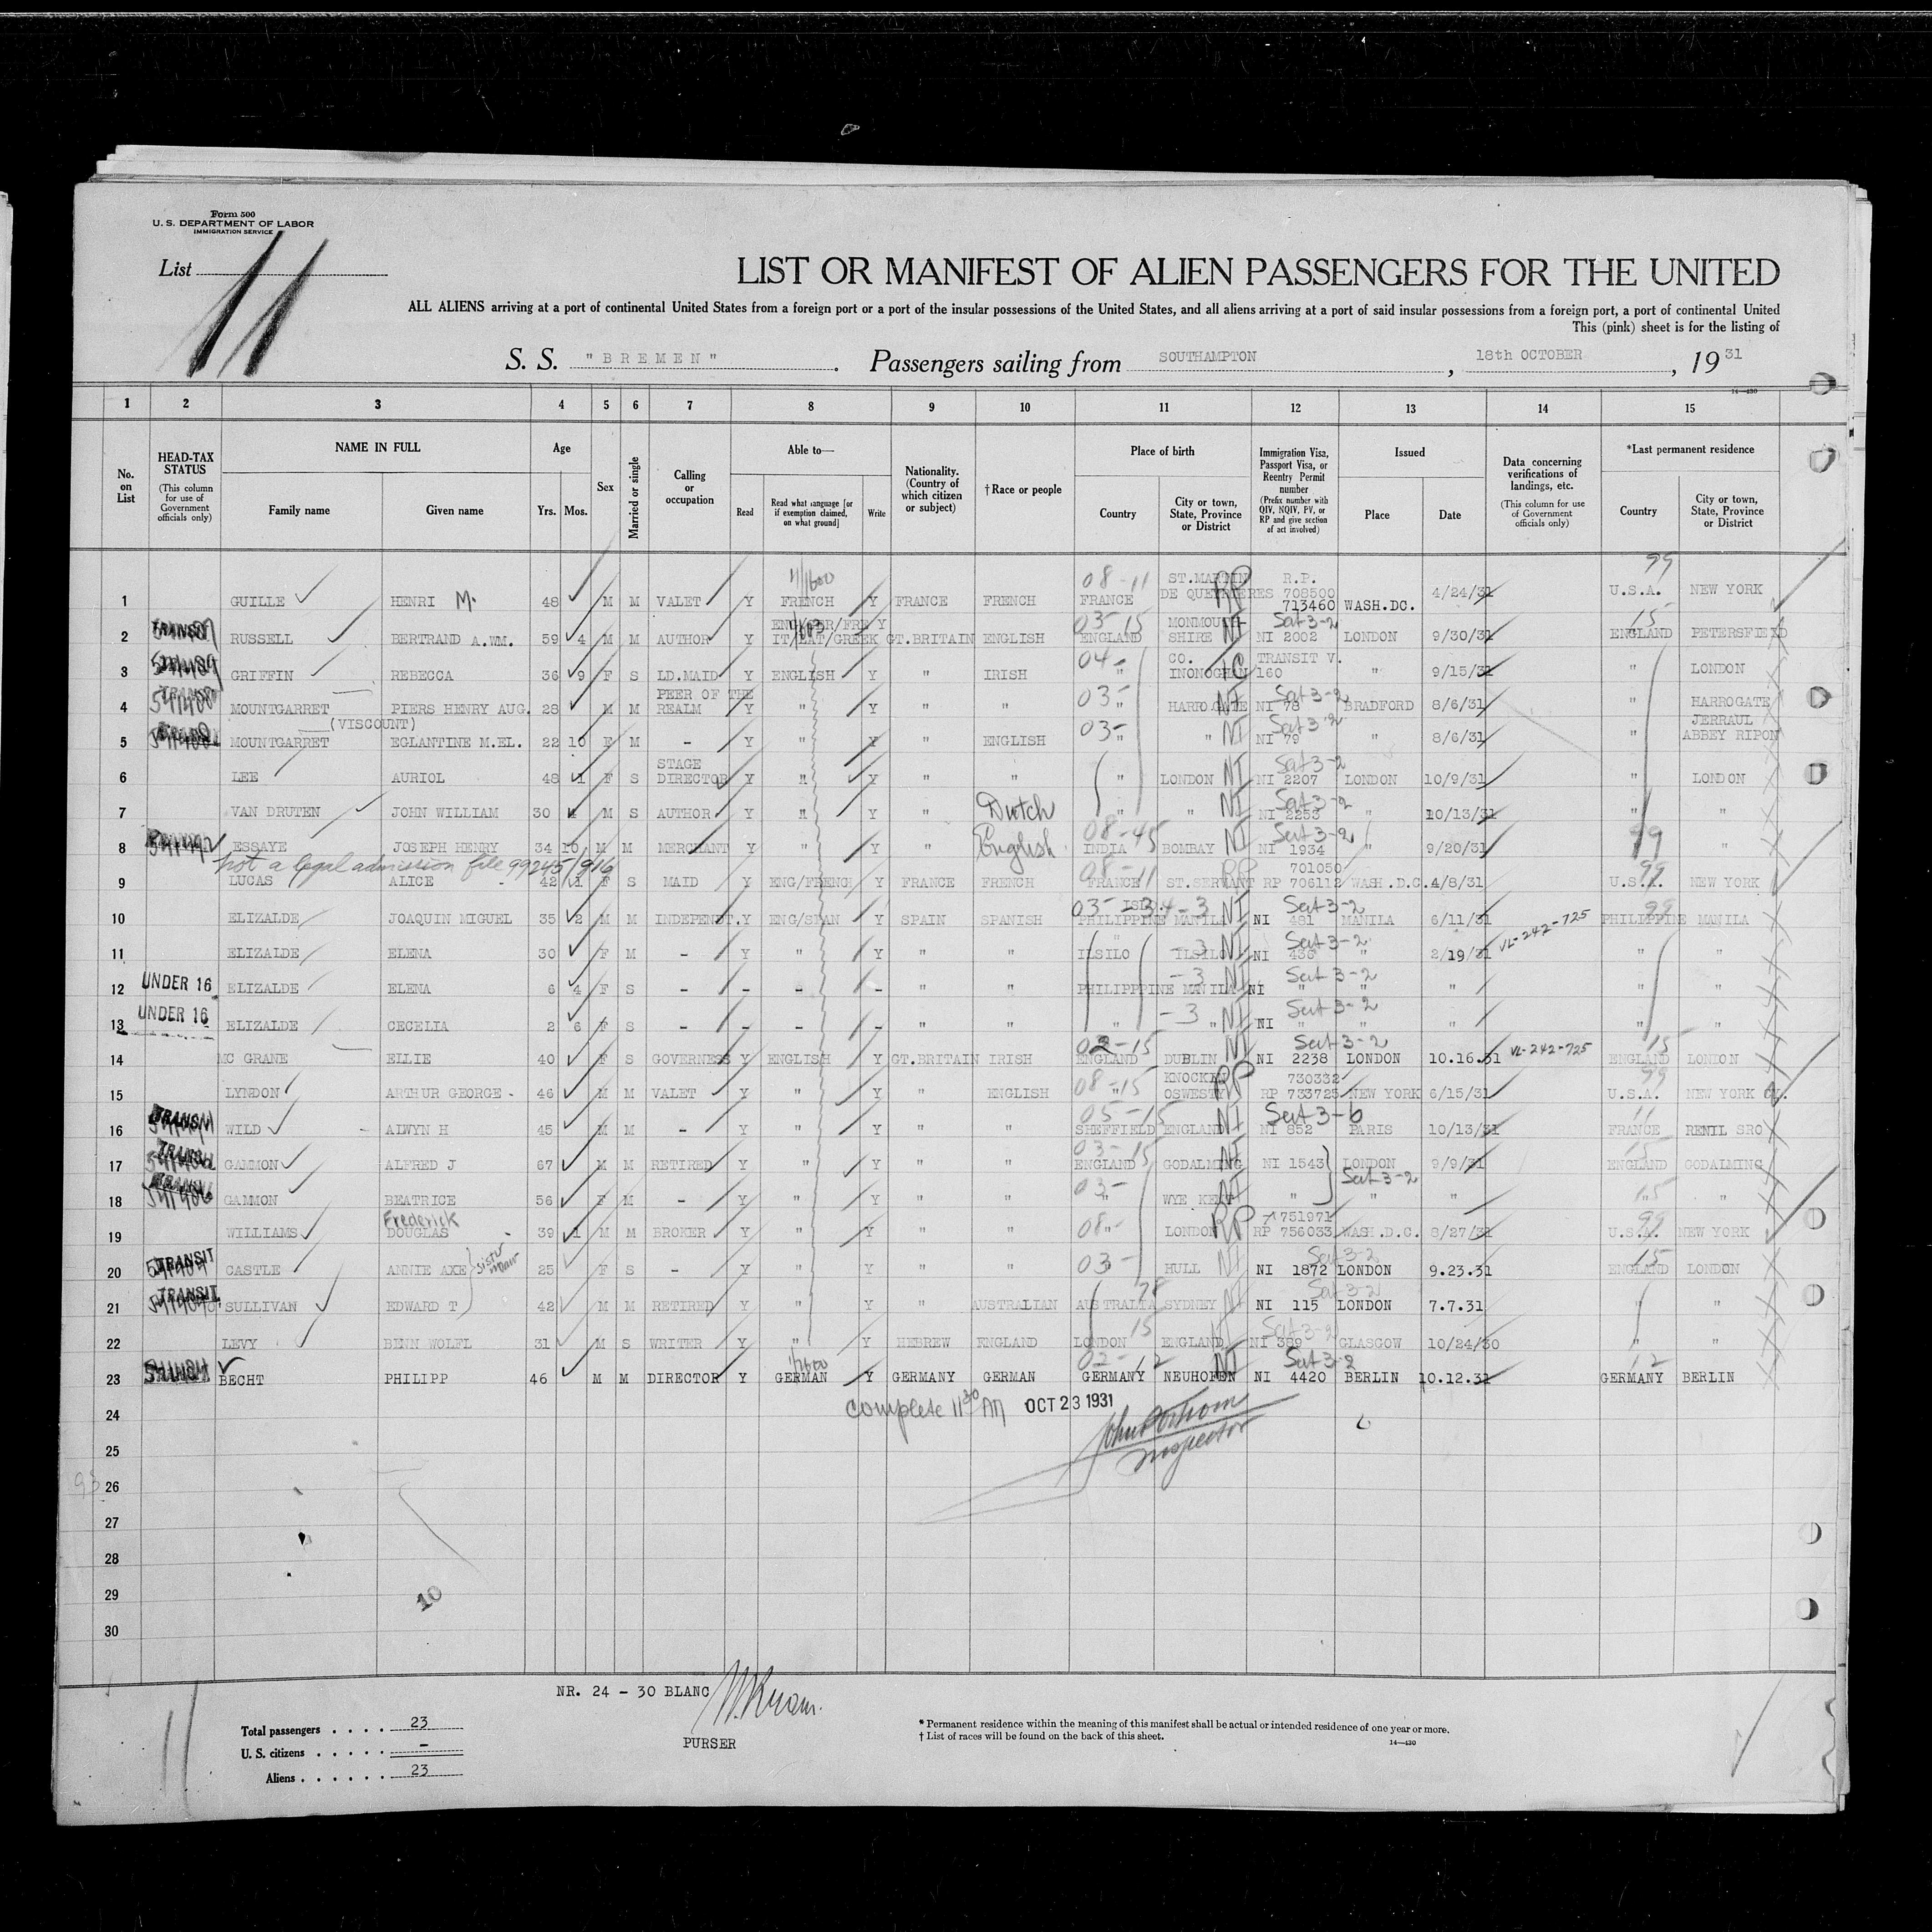 Form 500
U. S. DEPARTMENT OF LABOR
IMMIGRATION SERVICE
List 11
LIST OR MANIFEST OF ALIEN PASSENGERS FOR THE UNITED
ALL ALIENS arriving at a port of continental United States from a foreign port or a port of the insular possessions of the United States, and all aliens arriving at a port of said insular possessions from a foreign port, a port of continental United
This (pink) sheet is for the listing of
S. S. "BREMEN". Passengers sailing from SOUTHAMPTON, 18th OCTOBER, 19 31
14—430
1 2 3 4 5 6 7 8 9 10 11 12 13 14 15
No. on List
HEAD-TAX STATUS (This column for use of Government officials only)
NAME IN FULL Family name Given name
Age Yrs. Mos.
Sex
Married or single
Calling or occupation
Able to— Read Read what language [or if exemption claimed, on what ground] Write
Nationality. (Country of which citizen or subject)
†Race or people
Place of birth Country City or town, State, Province or District
Immigration Visa, Passport Visa, or Reentry Permit number (Prefix number with QIV, NQIV, PV, or RP and give section of act involved)
Issued Place Date
Data concerning verifications of landings, etc. (This column for use of Government officials only)
*Last permanent residence Country City or town, State, Province or District
1 GUILLE HENRI M. 48 M M VALET Y FRENCH Y FRANCE FRENCH 08-11 FRANCE ST.MARTIN DE QUEYRIERES RP R.P. 708500 713460 WASH.DC. 4/24/31 99 U.S.A. NEW YORK
2 TRANSIT RUSSELL BERTRAND A.WM. 59 4 M M AUTHOR Y IT/LAT/GREEK Y GT.BRITAIN ENGLISH 03-15 ENGLAND MONMOUTH SHIRE NI Sect 3-2 NI 2002 LONDON 9/30/31 15 ENGLAND PETERSFIELD
3 GRIFFIN REBECCA 36 9 F S LD.MAID Y ENGLISH Y " IRISH 04- " CO. TRANSIT V. 160 " 9/15/31 " LONDON
4 MOUNTGARRET (VISCOUNT) PIERS HENRY AUG. 28 M M PEER OF THE REALM Y " Y " " 03- " HARROGATE NI Sect 3-2 NI 78 BRADFORD 8/6/31 " HARROGATE
5 MOUNTGARRET EGLANTINE M.EL. 22 10 F M - Y " Y " ENGLISH 03- " " NI Sect 3-2 NI 79 " 8/6/31 " JERRAUL ABBEY RIPON
6 LEE AURIOL 48 1 F S STAGE DIRECTOR Y " Y " " " LONDON NI Sect 3-2 NI 2207 LONDON 10/9/31 " LONDON
7 VAN DRUTEN JOHN WILLIAM 30 4 M S AUTHOR Y " Y " Dutch " " NI Sect 3-2 NI 2253 " 10/13/31 " "
8 ESSAYE JOSEPH HENRY 34 10 M M MERCHANT Y " Y " English 08-45 INDIA BOMBAY NI Sect 3-2 NI 1934 " 9/20/31 "
not a legal admission file 99245/916
9 LUCAS ALICE 42 1 F S MAID Y ENG/FRENCH Y FRANCE FRENCH 08-11 FRANCE ST.SERVANT RP 701050 RP 706112 WASH.D.C. 4/8/31 99 U.S.A. NEW YORK
10 ELIZALDE JOAQUIN MIGUEL 35 2 M M INDEPENDT. Y ENG/SPAN Y SPAIN SPANISH PHILIPPINE ISL. MANILA NI Sect 3-2 NI 481 MANILA 6/11/31 VL-242-725 99 PHILIPPINE MANILA
11 ELIZALDE ELENA 30 F M - Y " Y " " ILSILO ILSILO NI Sect 3-2 NI 436 " 2/19/31 " "
12 UNDER 16 ELIZALDE ELENA 6 4 F S - - - - " " PHILIPPPINE MANILA NI Sect 3-2 NI " " " " "
13 UNDER 16 ELIZALDE CECELIA 2 6 F S - - - - " " " " NI Sect 3-2 NI " " " " "
14 MC GRANE ELLIE 40 F S GOVERNESS Y ENGLISH Y GT.BRITAIN IRISH 02-15 ENGLAND DUBLIN NI Sect 3-2 NI 2238 LONDON 10.16.31 VL-242-725 15 ENGLAND LONDON
15 LYNDON ARTHUR GEORGE 46 M M VALET Y " Y " ENGLISH 08-15 " KNOCKIN OSWESTY RP 730332 RP 733725 NEW YORK 6/15/31 99 U.S.A. NEW YORK
16 TRANSIT WILD ALWYN H 45 M M - Y " Y " " 05-15 SHEFFIELD ENGLAND NI Sect 3-6 NI 852 PARIS 10/13/31 11 FRANCE RENIL SRO
17 TRANSIT GAMMON ALFRED J 67 M M RETIRED Y " Y " " 03-15 ENGLAND GODALMING NI NI 1543 LONDON 9/9/31 15 ENGLAND GODALMING
18 TRANSIT GAMMON BEATRICE 56 F M - Y " Y " " 03- " WYE KENT NI " Sect 3-2 " " 15 " "
19 WILLIAMS Frederick DOUGLAS 39 1 M M BROKER Y " Y " " 08- " LONDON RP 751971 RP 756033 WASH.D.C. 8/27/31 99 U.S.A. NEW YORK
20 TRANSIT CASTLE ANNIE AXE 25 F S - Y " Y " " 03- " HULL NI Sect 3-2 NI 1872 LONDON 9.23.31 15 ENGLAND LONDON
21 TRANSIT SULLIVAN EDWARD T 42 M M RETIRED Y " Y " AUSTRALIAN 78 AUSTRALIA SYDNEY NI Sect 3-2 NI 115 LONDON 7.7.31 " "
22 LEVY BENN WOLFL 31 M S WRITER Y " Y HEBREW ENGLAND 15 LONDON ENGLAND NI Sect 3-2 NI 399 GLASGOW 10/24/30 " "
23 BECHT PHILIPP 46 M M DIRECTOR Y GERMAN Y GERMANY GERMAN 02-12 GERMANY NEUHOFEN NI Sect 3-2 NI 4420 BERLIN 10.12.31 12 GERMANY BERLIN
24 complete 11 30 AM OCT 23 1931
Inspector
25
26
27
28
29 10
30
NR. 24 - 30 BLANC
PURSER
Total passengers . . . . 23
U. S. citizens . . . . . -
Aliens . . . . . . 23
* Permanent residence within the meaning of this manifest shall be actual or intended residence of one year or more.
† List of races will be found on the back of this sheet.
14—430